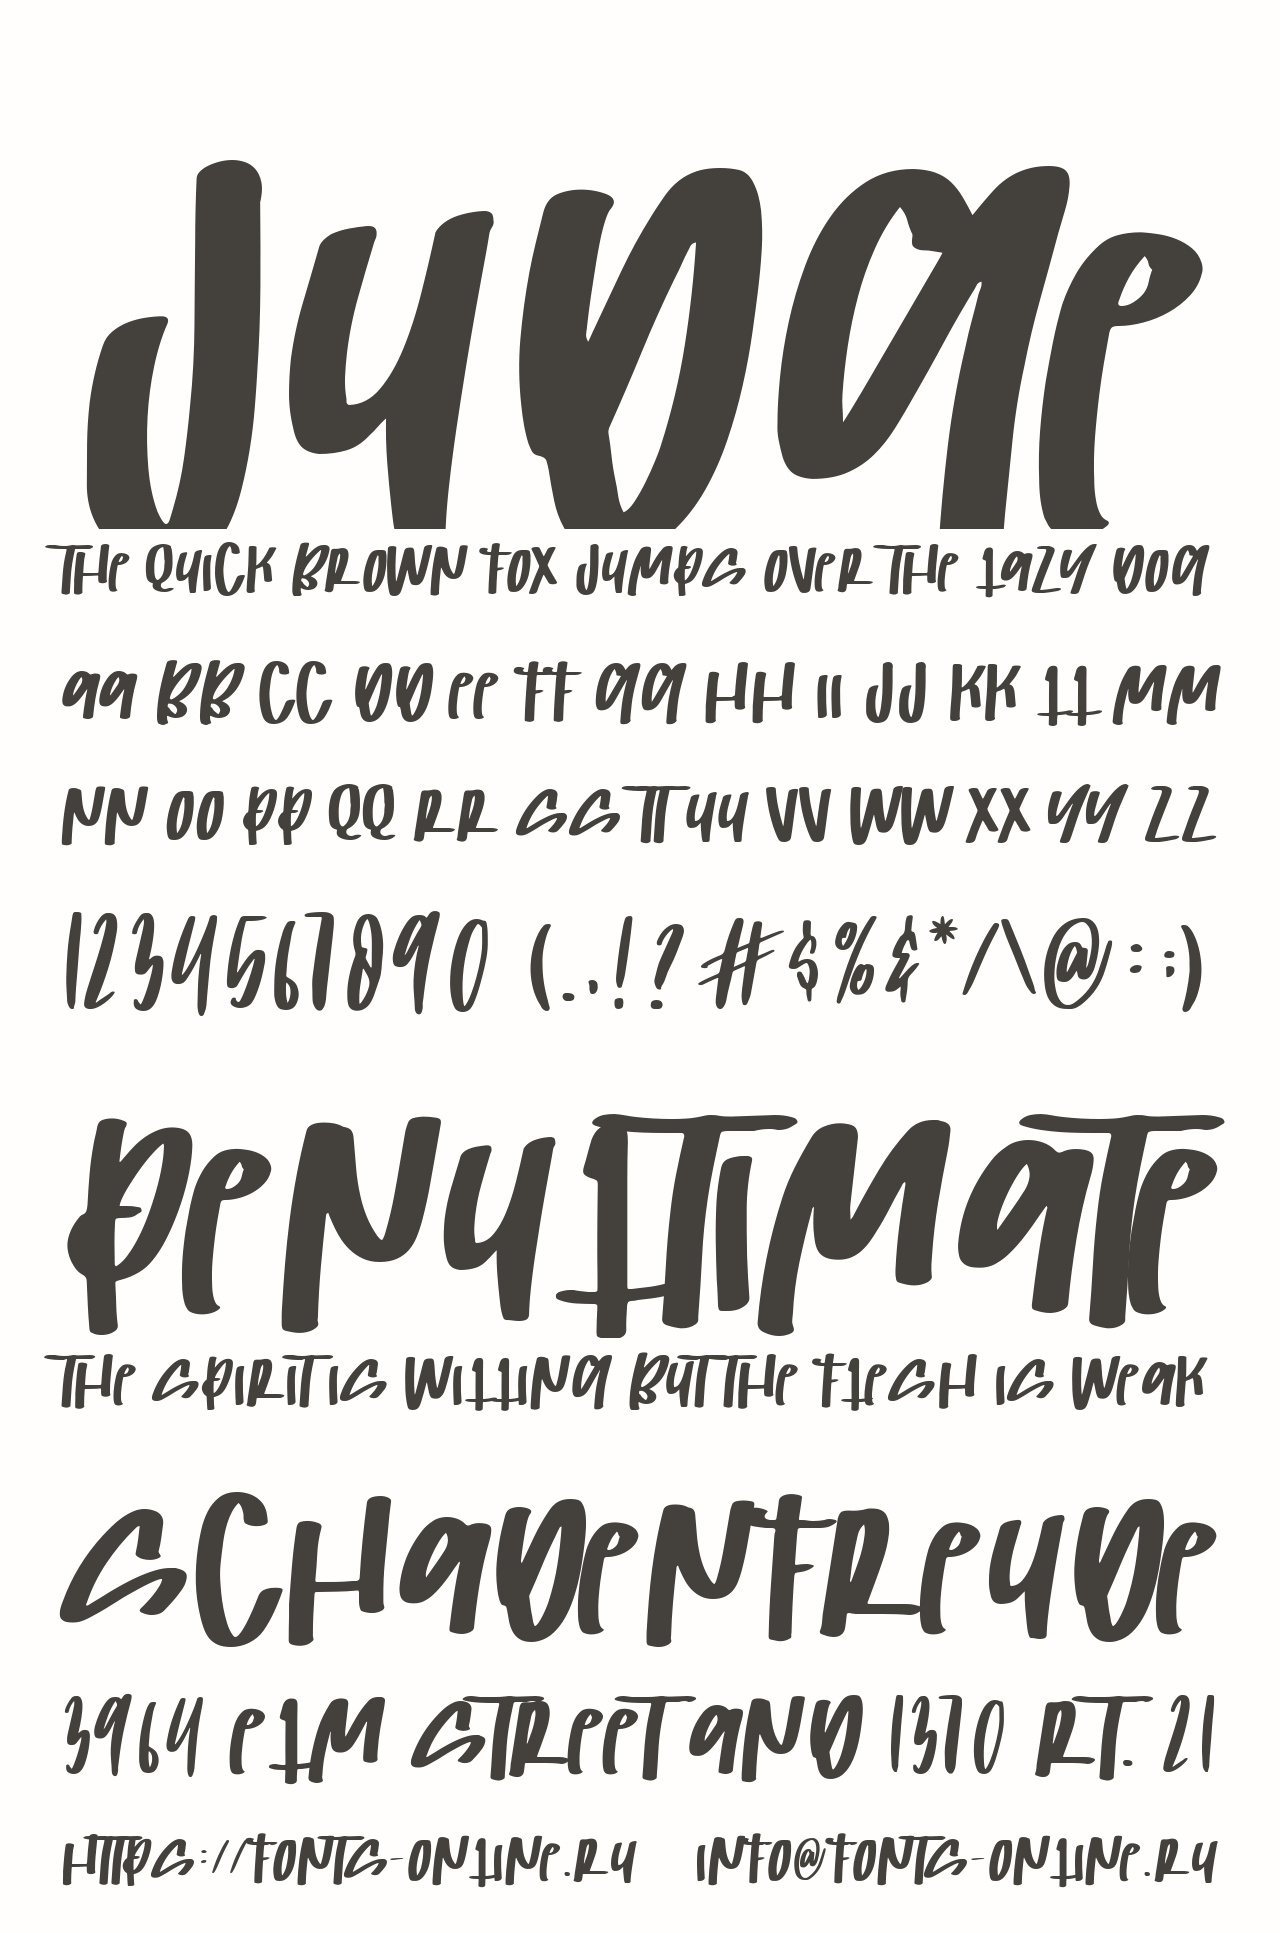 Judge
The Quick Brown Fox Jumps Over The Lazy Dog
Aa Bb Cc Dd Ee Ff Gg Hh Ii Jj Kk Ll Mm
Nn Oo Pp Qq Rr Ss Tt Uu Vv Ww Xx Yy Zz
1234567890 (.,!?#$%&*/\@:;)
Penultimate
The Spirit Is Willing But The Flesh Is Weak
Schadenfreude
3964 Elm Street and 1370 Rt. 21
https://fonts-online.ru info@fonts-online.ru